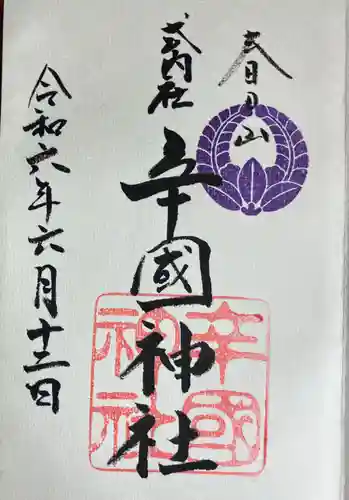 春日山
式内社
辛國神社
辛國神社
令和六年六月十二日